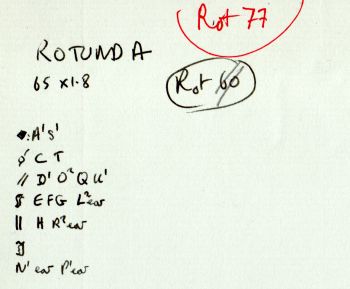 Rot 77
ROTUNDA
65 x 1.8
Rot 60
◆: A' S'
ƒ C T
// D' O² Q U'
$ EFG L²ear
|| H R²ear
N' ear P'ear